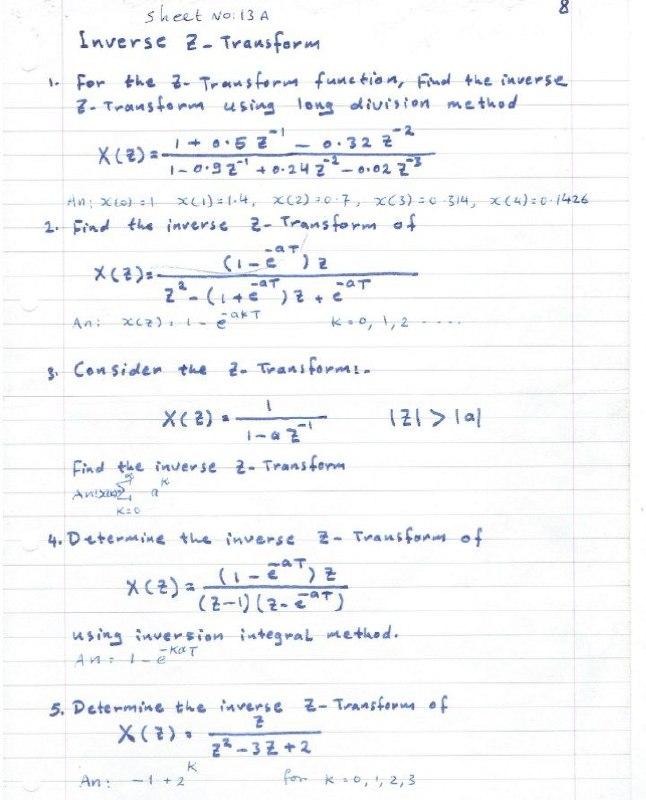 Sheet No: 13 A
8
Inverse Z-Transform
1. For the Z-Transform function, Find the inverse
Z-Transform using long division method
X(Z) = (1 + 0.5 Z^-1 - 0.32 Z^-2) / (1 - 0.9 Z^-1 + 0.24 Z^-2 - 0.02 Z^-3)
An: x(0) = 1 x(1) = 1.4, x(2) = 0.7, x(3) = 0.314, x(4) = 0.1426
2. Find the inverse Z-Transform of
X(Z) = (1 - e^-aT) Z / (Z^2 - (1 + e^-aT) Z + e^-aT)
An: x(Z) = 1 - e^-akT K = 0, 1, 2 ....
3. Consider the Z-Transform:-
X(Z) = 1 / (1 - a Z^-1) |Z| > |a|
Find the inverse Z-Transform
An: Σ a^K
K=0
4. Determine the inverse Z-Transform of
X(Z) = (1 - e^-aT) Z / (Z-1)(Z - e^-aT)
using inversion integral method.
An = 1 - e^-KaT
5. Determine the inverse Z-Transform of
X(Z) = Z / (Z^2 - 3Z + 2)
An: -1 + 2^K for K = 0, 1, 2, 3